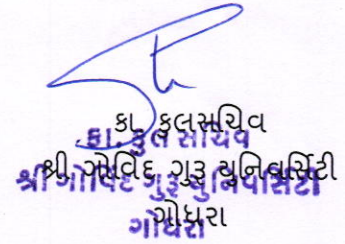 કા. કુલસચિવ
શ્રી ગોવિંદ ગુરૂ યુનિવર્સિટી
ગોધરા
કા. કુલ સચિવ
શ્રી ગોવિંદ ગુરૂ યુનિવર્સિટી
ગોધરા